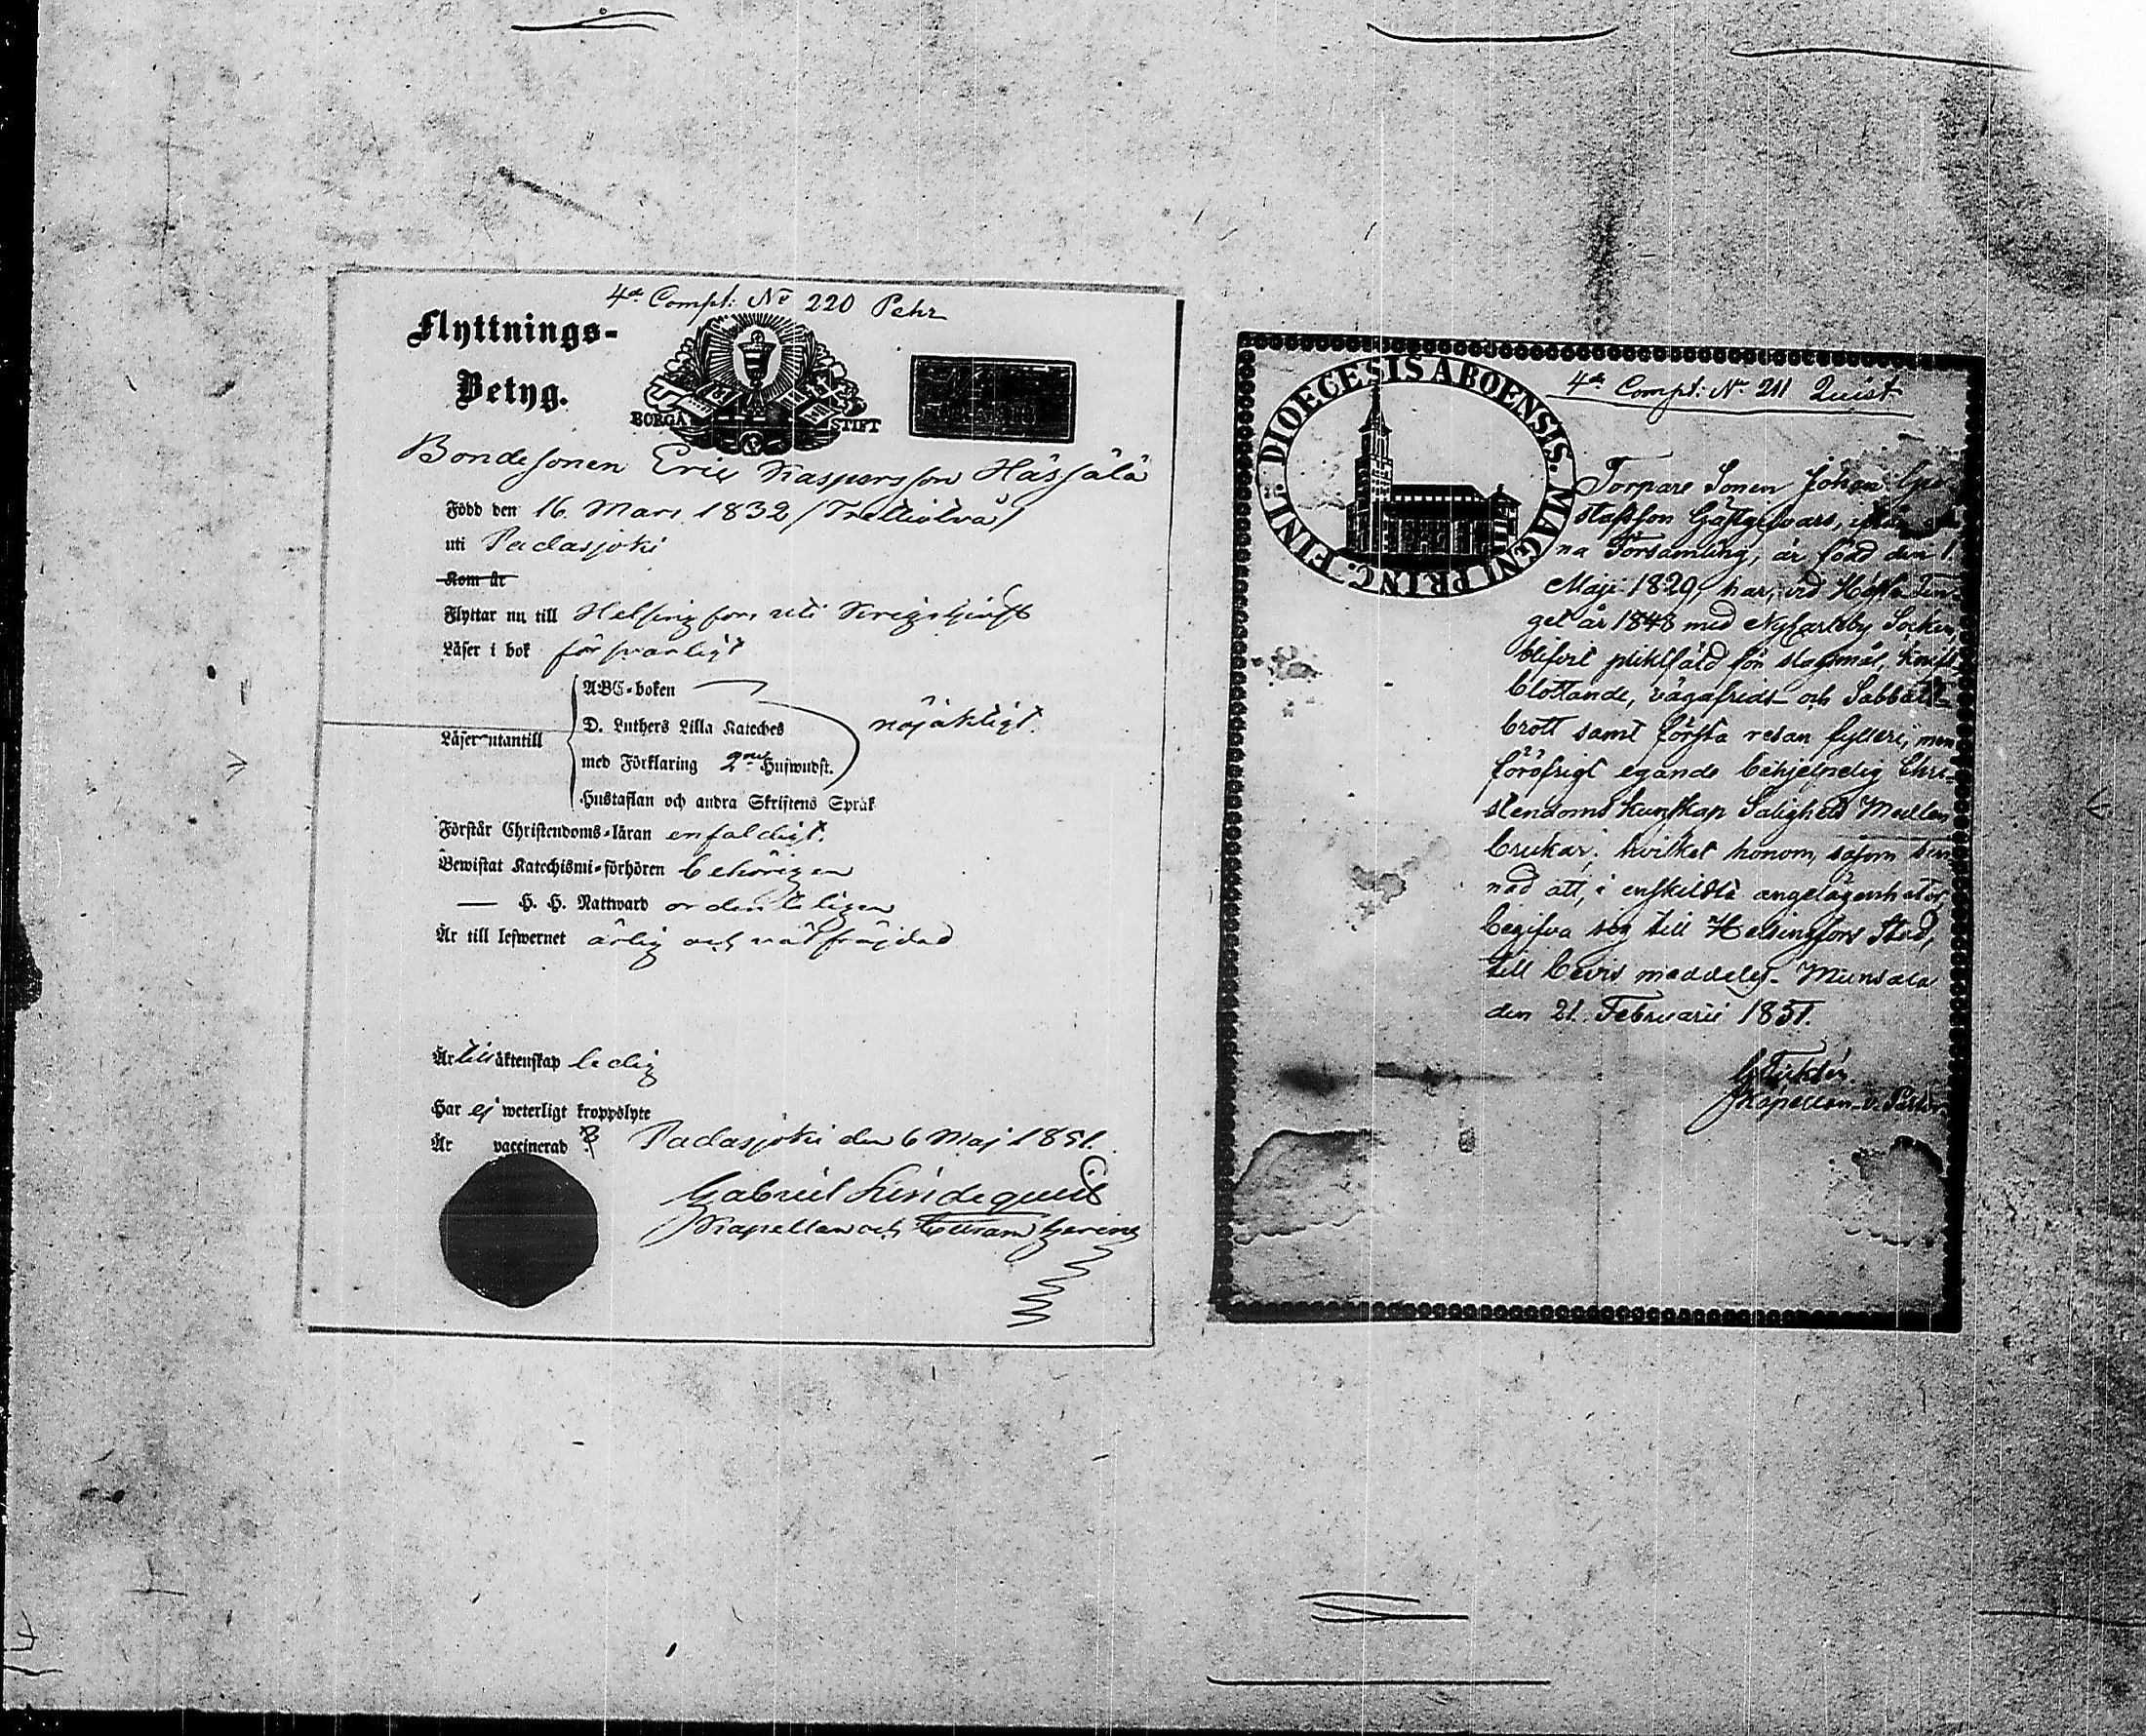 4de Compt: No 220 Pehr
Flyttnings-
Betyg.
BORGÅ STIFT
Bondesonen Eric Kaspersson Hässälä
Född den 16 Mars 1832 (Trettiotvå)
uti Padasjoki
Kom år
Flyttar nu till Helsingfors uti Krigstjenst
Läser i bok försvarligt
ABC-boken
D. Luthers Lilla Kateches nöjaktigt.
Läser utantill
med Förklaring 2ne Hufwudst.
Hustaflan och andra Skriftens Språk
Förstår Christendoms-läran enfaldigt.
Bewistat Katechismi-förhören behörigen
— H. H. Nattward ordentligen
Är till lefwernet ärlig och välfräjdad
Är till äktenskap ledig
Har ej weterligt kroppslyte
Är vaccinerad
Padasjoki den 6 Maj 1851.
Gabriel Lindequist
Kapellan och
DIOECESIS ABOENSIS. MAGNI PRINC. FINL.
4de Compt: No 211 Quist
Torpare Sonen Johan Gu-
stafsson Gästgifvars,
na Församling, är född den 1
Maji 1829, har, vid Höste Tin-
get år 1848 med Nykarleby Socken,
blifvit pliktfäld för slagsmål, knif-
blottande, vägafrids- och Sabbats-
brott samt första resan fylleri, men
föröfrigt egande behjelpelig Chri-
stendoms kunskap Salighets Medlen
brukar; hvilket honom, såsom sin-
nad att, i enskildta angelägenheter,
begifva sig till Helsingfors Stad,
till bevis meddeles. Munsala
den 21. Februarii 1851.
Kapellan v. Pastor